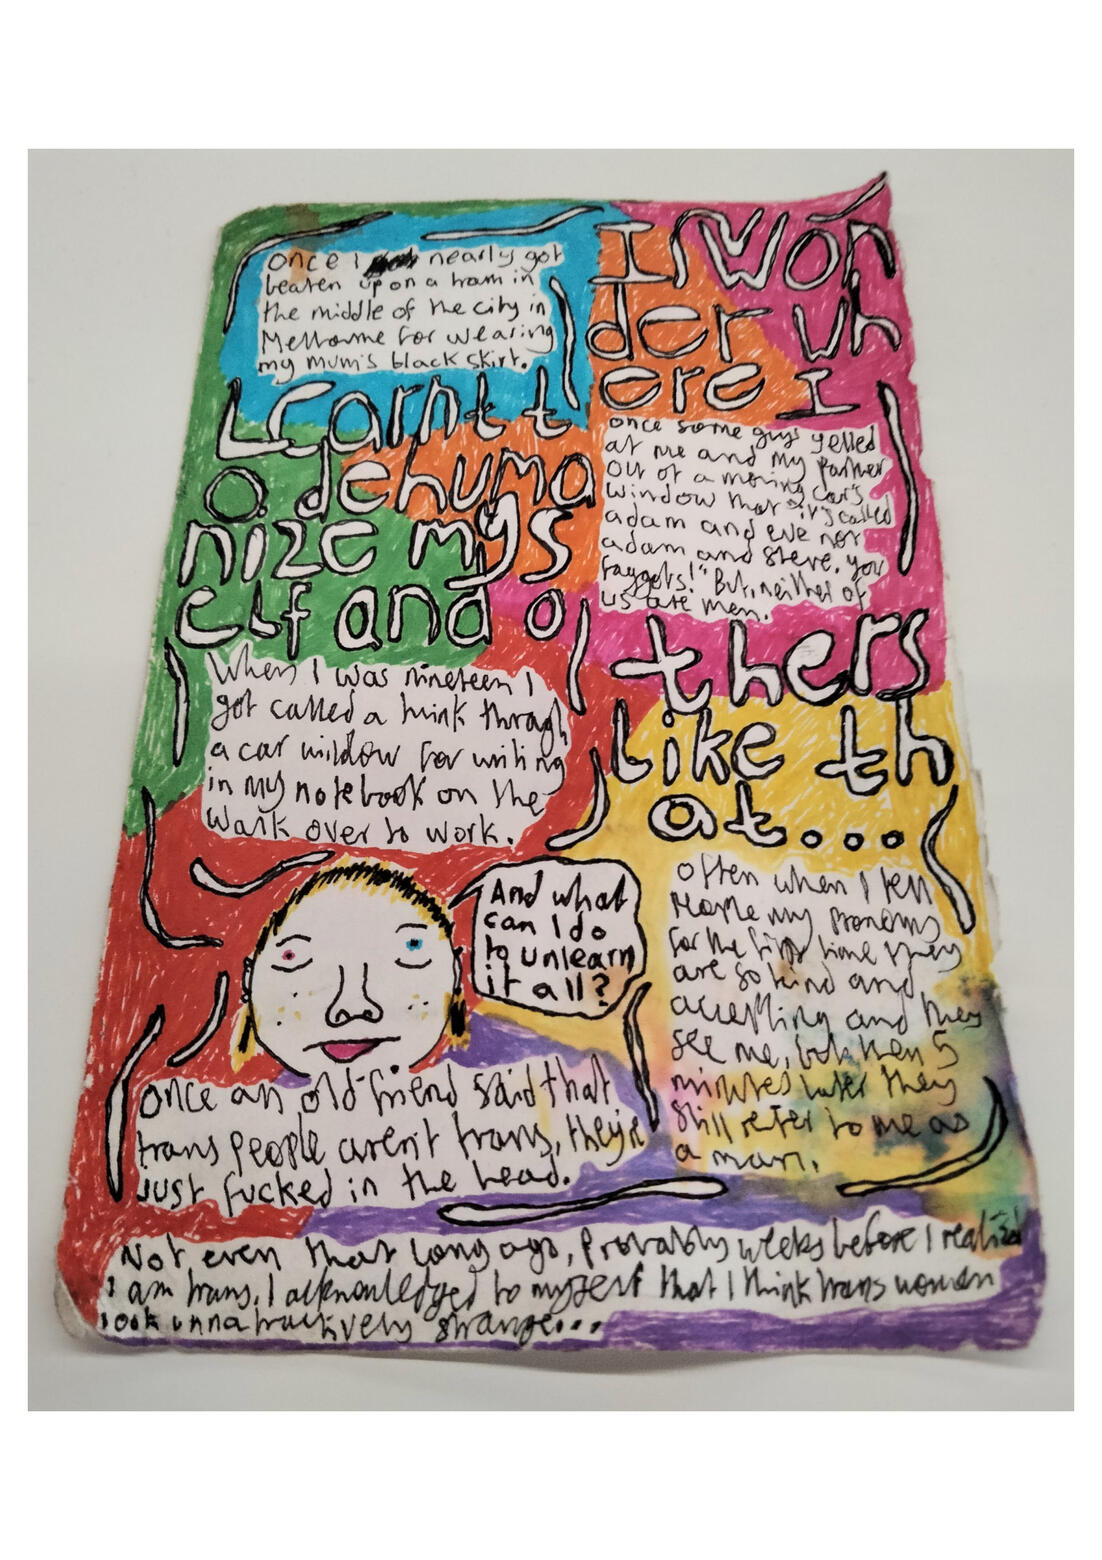 once I nearly got
beaten up on a tram in
the middle of the city in
Melbourne for wearing
my mum's black skirt.
I WON
der wh
ere I
Learnt t
o dehuma
nize mys
elf and o
once some guys yelled
at me and my partner
out of a moving car's
window that "it's called
adam and eve not
adam and steve, you
faggots!" But, neither of
us are men.
thers
like th
at...
When I was nineteen I
got called a twink through
a car window for writing
in my notebook on the
walk over to work.
And what
can I do
to unlearn
it all?
often when I tell
people my pronouns
for the first time they
are so kind and
accepting and they
see me, but then 5
minutes later they
still refer to me as
a man.
Once an old friend said that
trans people aren't trans, they're
just fucked in the head.
Not even that long ago, probably weeks before I realized
I am trans, I acknowledged to myself that I think trans women
look unnatractively strange...